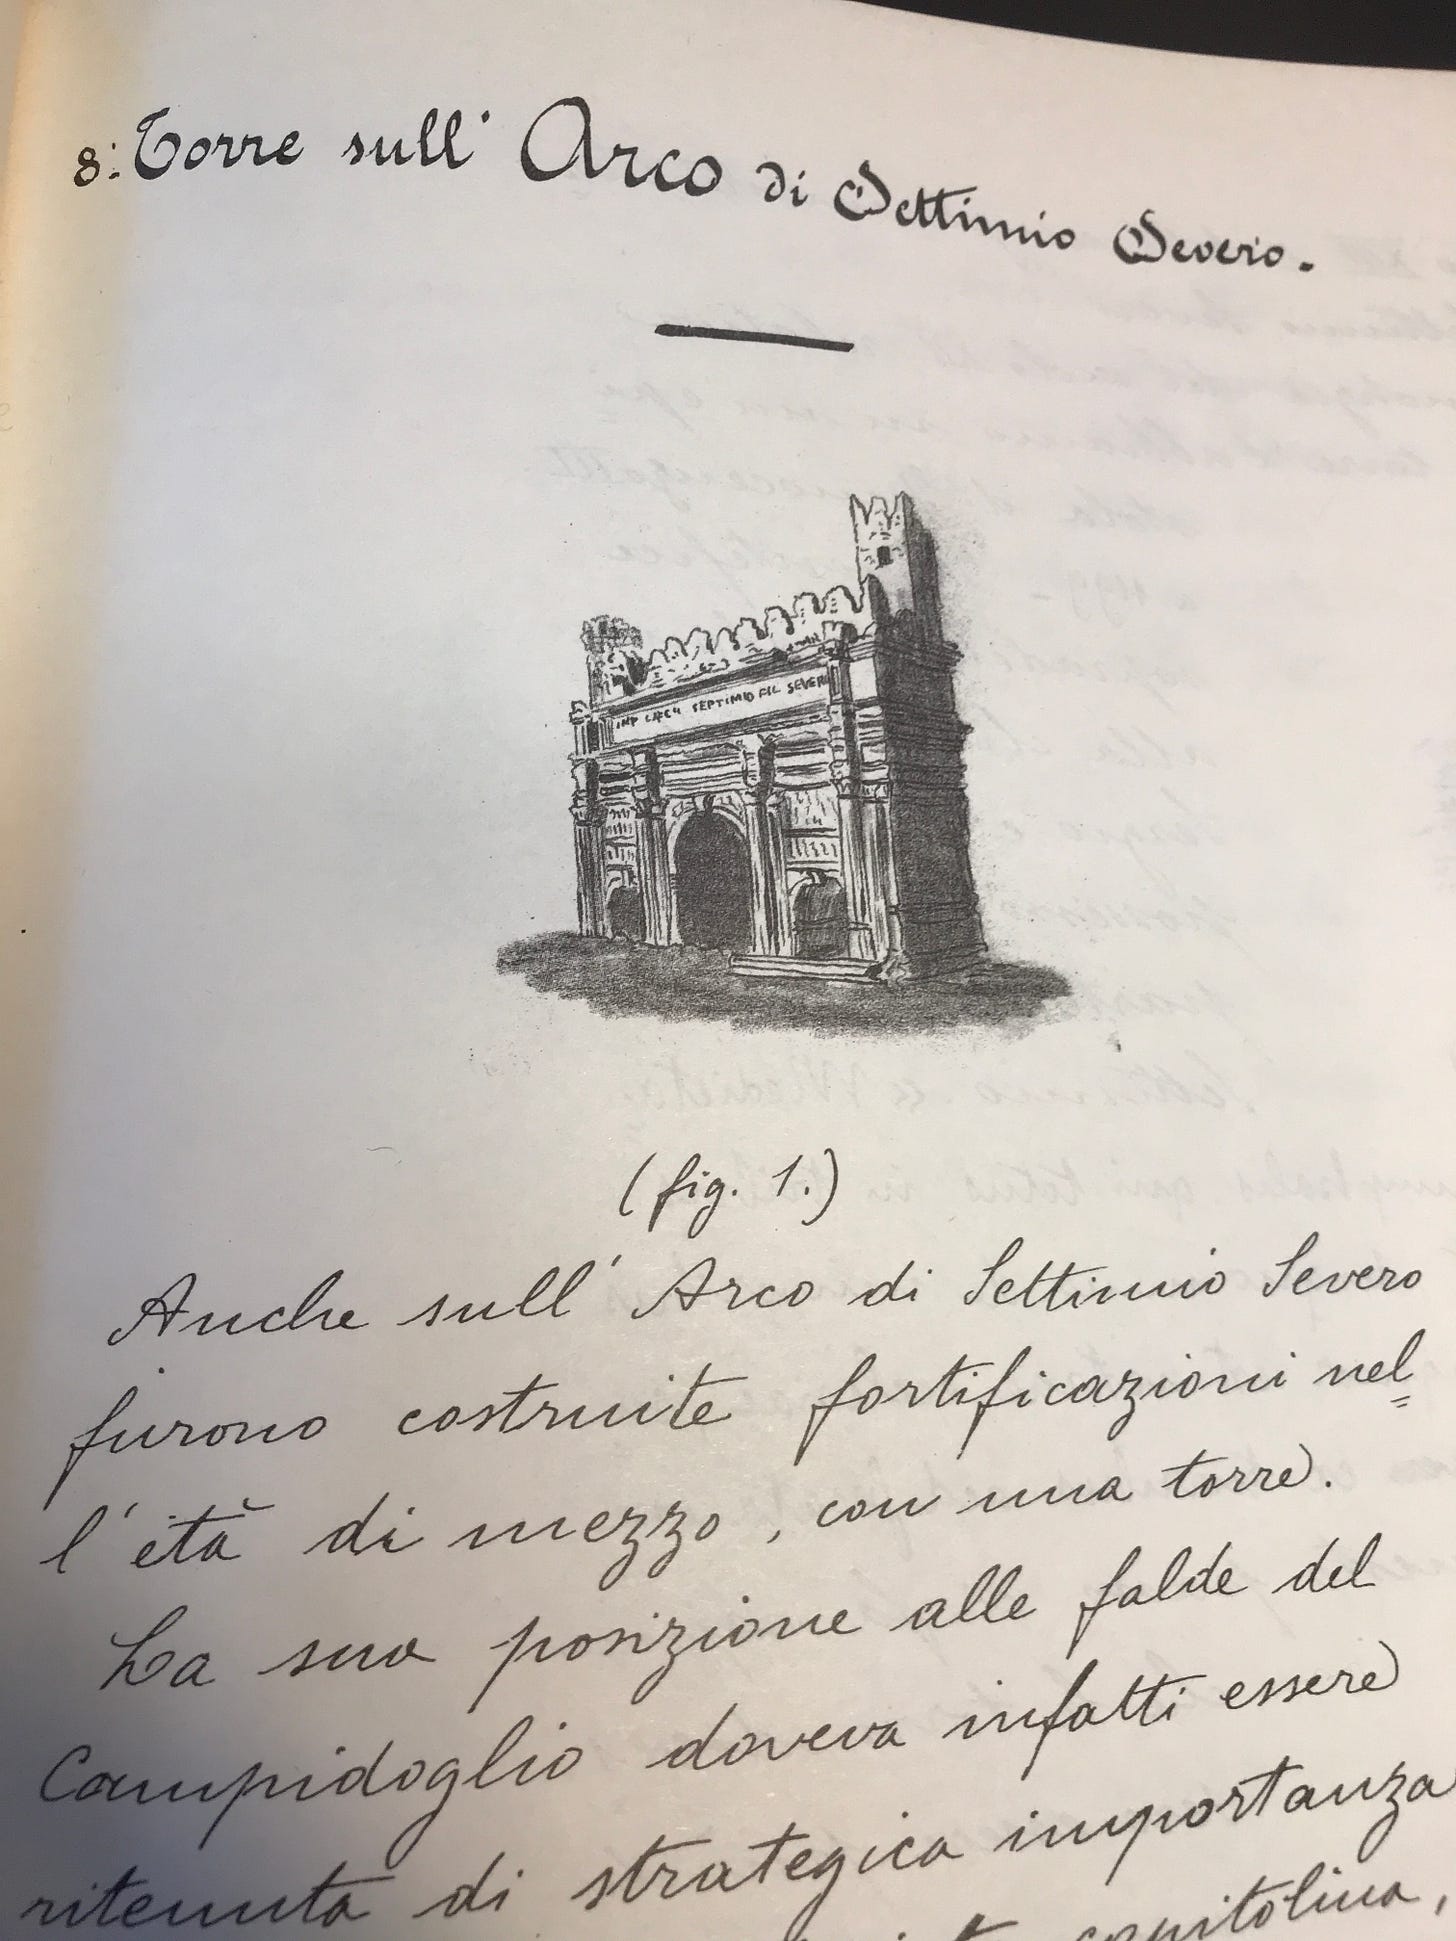 8: Torre sull' Arco di Settimio Severo.
SEPTIMIO FIL SEVERO
(fig. 1.)
Anche sull' Arco di Settimio Severo
furono costruite fortificazioni nel=
l'età di mezzo, con una torre.
La sua posizione alle falde del
Campidoglio doveva infatti essere
ritenuta di strategica importanza
capitolina,